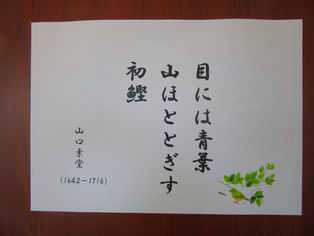 目には青葉
山ほととぎす
初鰹
山口素堂
(1642～1716)